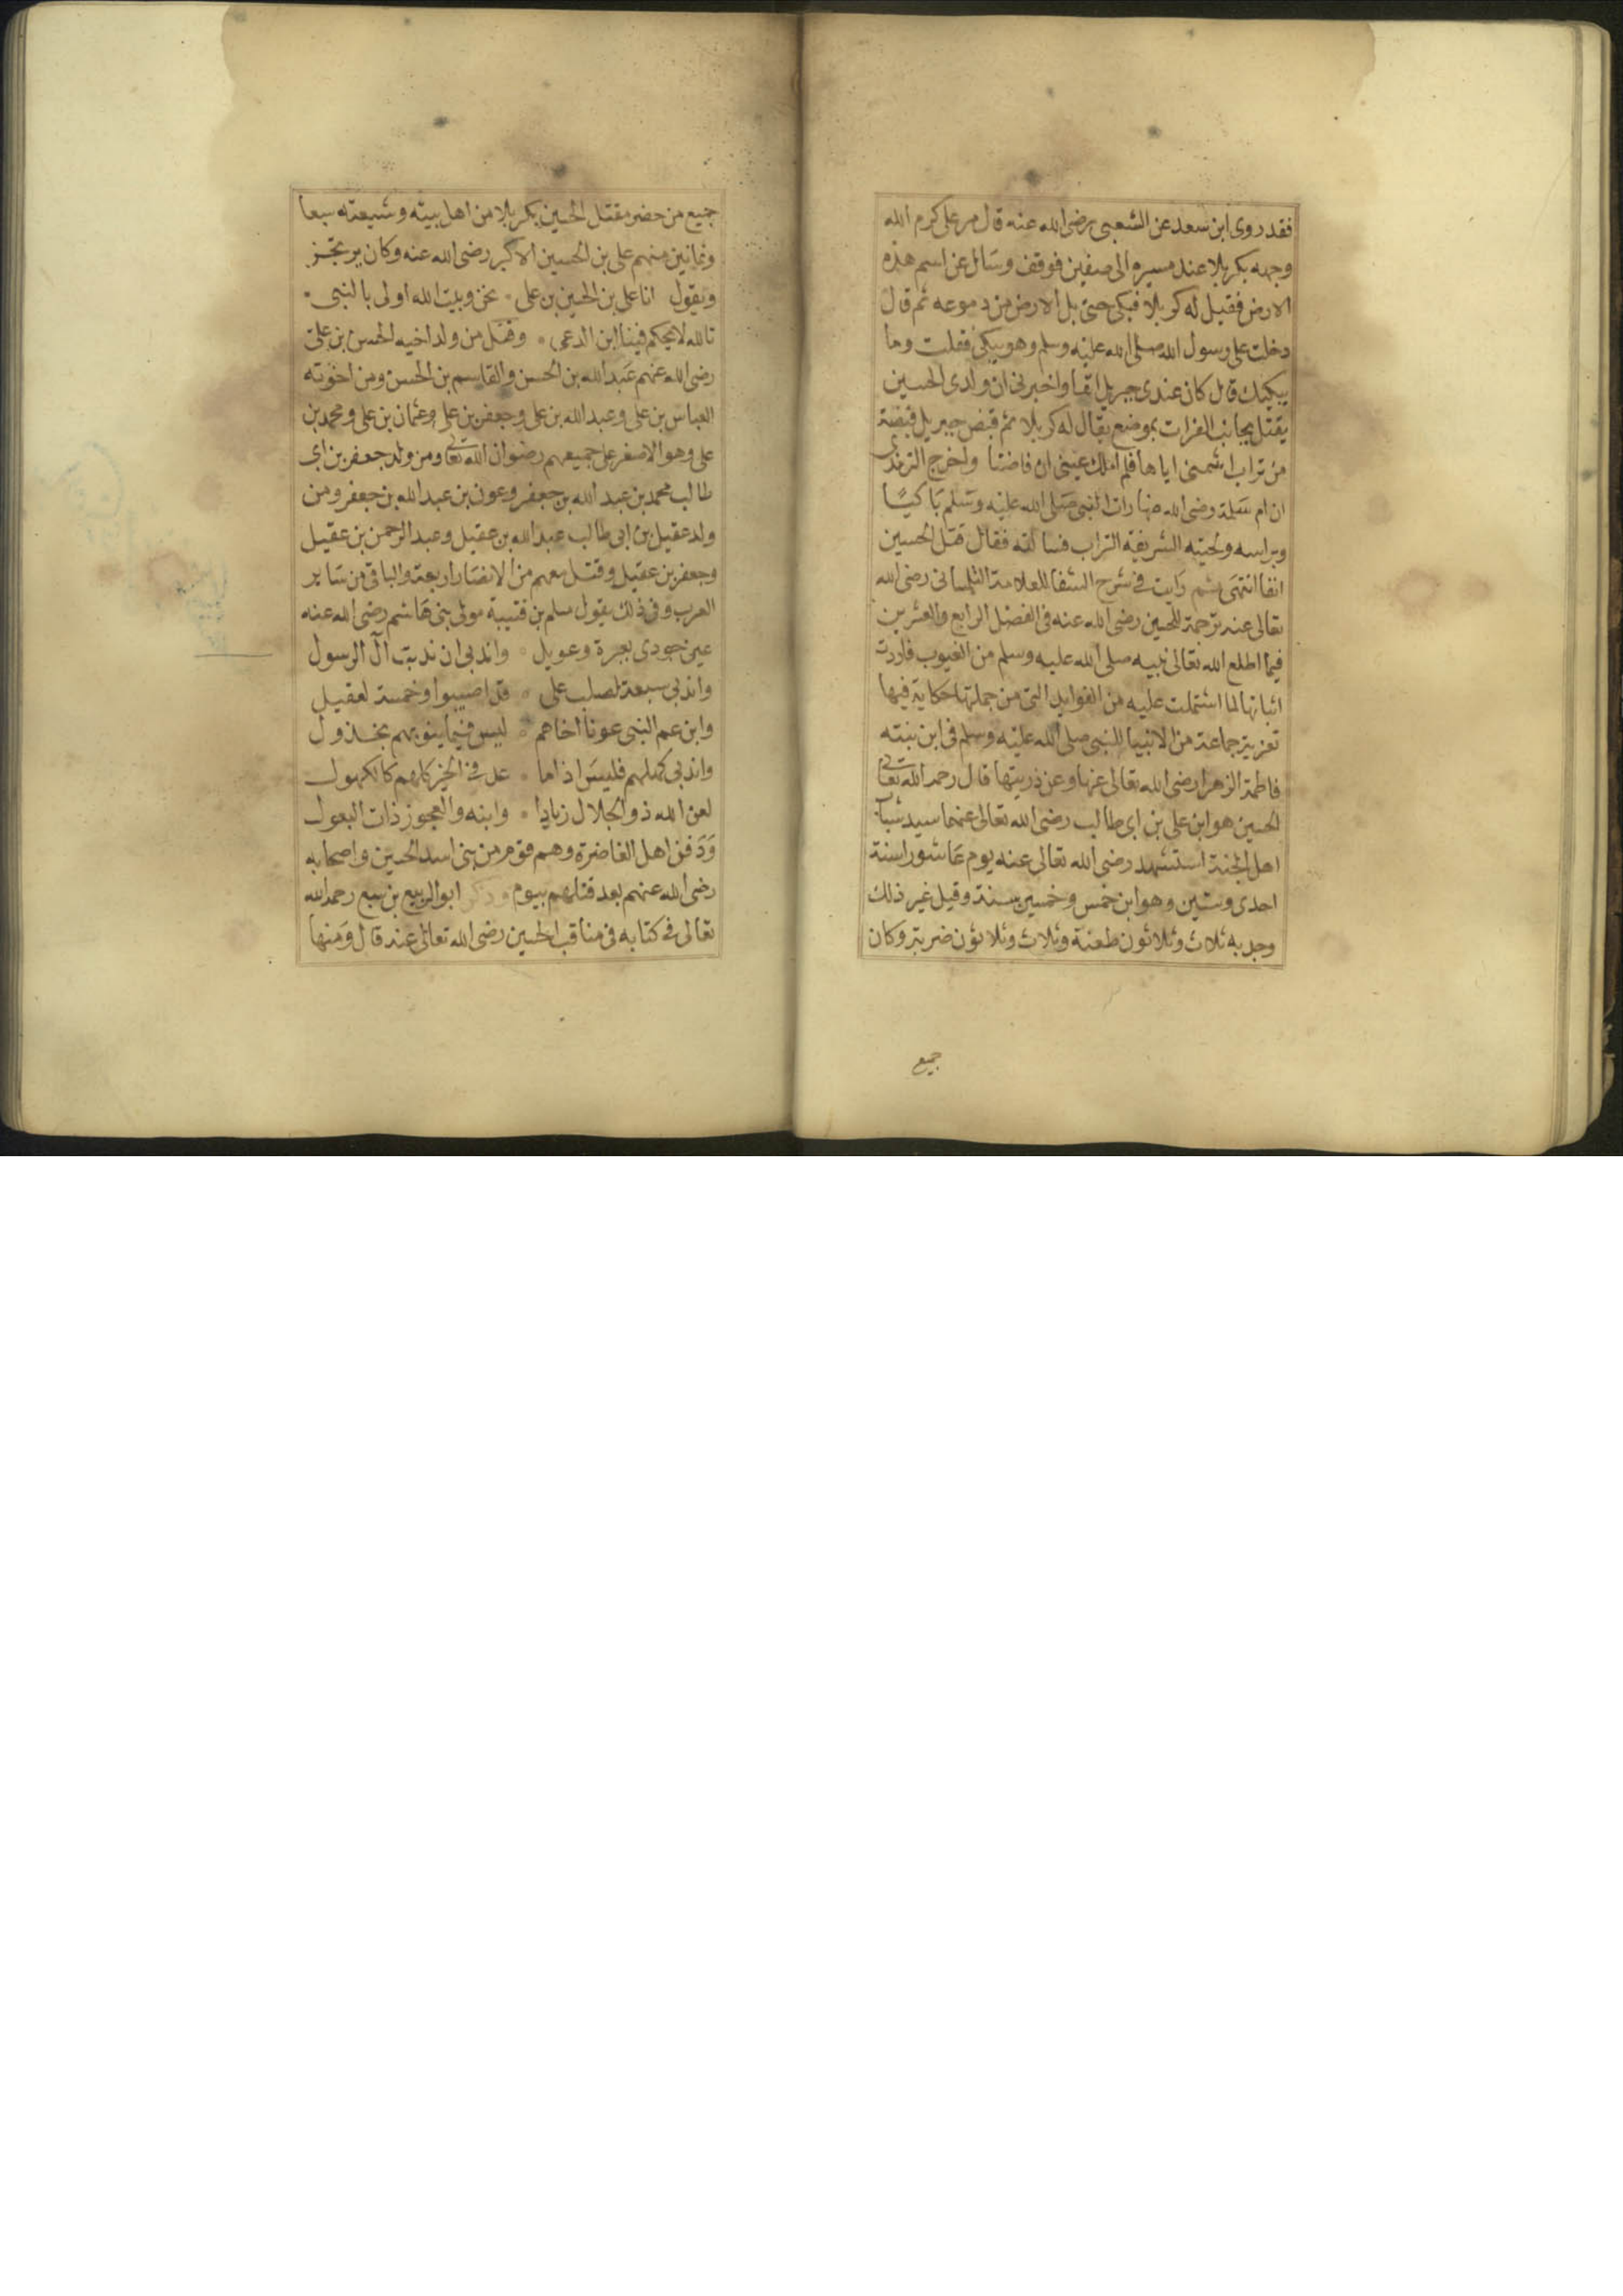 فقد روى ابن سعد عن الشعبى رضى الله عنه قال مر على كرم الله
وجهه بكربلا عند مسيره الى صفين فوقف وسال عن اسم هذه
الارض فقيل له كربلا فبكى حتى بل الارض من دموعه ثم قال
دخلت على رسول الله صلى الله عليه وسلم وهو يبكى فقلت وما
يبكيك قال كان عندى جبريل انفا واخبرنى ان ولدى الحسين
يقتل بجانب الفرات بموضع يقال له كربلا ثم قبض جبريل قبضة
من تراب اشمنى اياها فلم املك عينى ان فاضتا واخرج الترمذى
ان ام سلمة رضى الله عنها رات النبى صلى الله عليه وسلم باكيًا
وبراسه ولحيته الشريفة التراب فسالته فقال قتل الحسين
انفا انتهى ثم رايت فى شرح الشفا للعلامة التلمسانى رضى الله
تعالى عنه ترجمة للحسين رضى الله عنه فى الفصل الرابع والعشرين
فيما اطلع الله تعالى نبيه صلى الله عليه وسلم من الغيوب فاردت
اثباتها لما اشتملت عليه من الفوايد التى من جملتها حكاية فيها
تعزية جماعة من الانبيا للنبى صلى الله عليه وسلم فى ابن بنته
فاطمة الزهرا رضى الله تعالى عنها وعن ذريتها قال رحمه الله تعالى
الحسين هو ابن على بن ابى طالب رضى الله تعالى عنهما سيد شباب
اهل الجنة استشهد رضى الله تعالى عنه يوم عاشورا سنة
احدى وستين وهو ابن خمس وخمسين سنة وقيل غير ذلك
وجد به ثلاث وثلاثون طعنة وثلاث وثلاثون ضربة وكان
جميع
جميع من حضر مقتل الحسين بكربلا من اهل بيته وشيعته سبعا
وثمانين منهم على بن الحسين الاكبر رضى الله عنه وكان يرتجز
ويقول انا على بن الحسين بن على نحن وبيت الله اولى بالنبى
تالله لا يحكم فينا ابن الدعى وقتل من ولد اخيه الحسن بن على
رضى الله عنهم عبد الله بن الحسن والقاسم بن الحسن ومن اخوته
العباس بن على وعبد الله بن على وجعفر بن على وعثمان بن على ومحمد بن
على وهو الاصغر على جميعهم رضوان الله تعالى ومن ولد جعفر بن ابى
طالب محمد بن عبد الله بن جعفر وعون بن عبد الله بن جعفر ومن
ولد عقيل بن ابى طالب عبد الله بن عقيل وعبد الرحمن بن عقيل
وجعفر بن عقيل وقتل معهم من الانصار اربعة والباقى من ساير
العرب وفى ذلك يقول مسلم بن قتيبة مولى بنى هاشم رضى الله عنه
عين جودى بعبرة وعويل واندبى ان ندبت آل الرسول
واندبى سبعة لصلب على قد اصيبوا وخمسة لعقيل
وابن عم النبى عونا اخاهم ليس فيما ينوبهم بخذول
واندبى كهلهم فليس اذا ما عد فى الخير كلهم كالكهول
لعن الله ذو الجلال زيادا وابنه والعجوز ذات البعول
ودفن اهل الغاضرة وهم قوم من بنى اسد الحسين واصحابه
رضى الله عنهم بعد قتلهم بيوم وذكر ابو الربيع بن سبع رحمه الله
تعالى فى كتابه فى مناقب الحسين رضى الله تعالى عنه قال ومنها